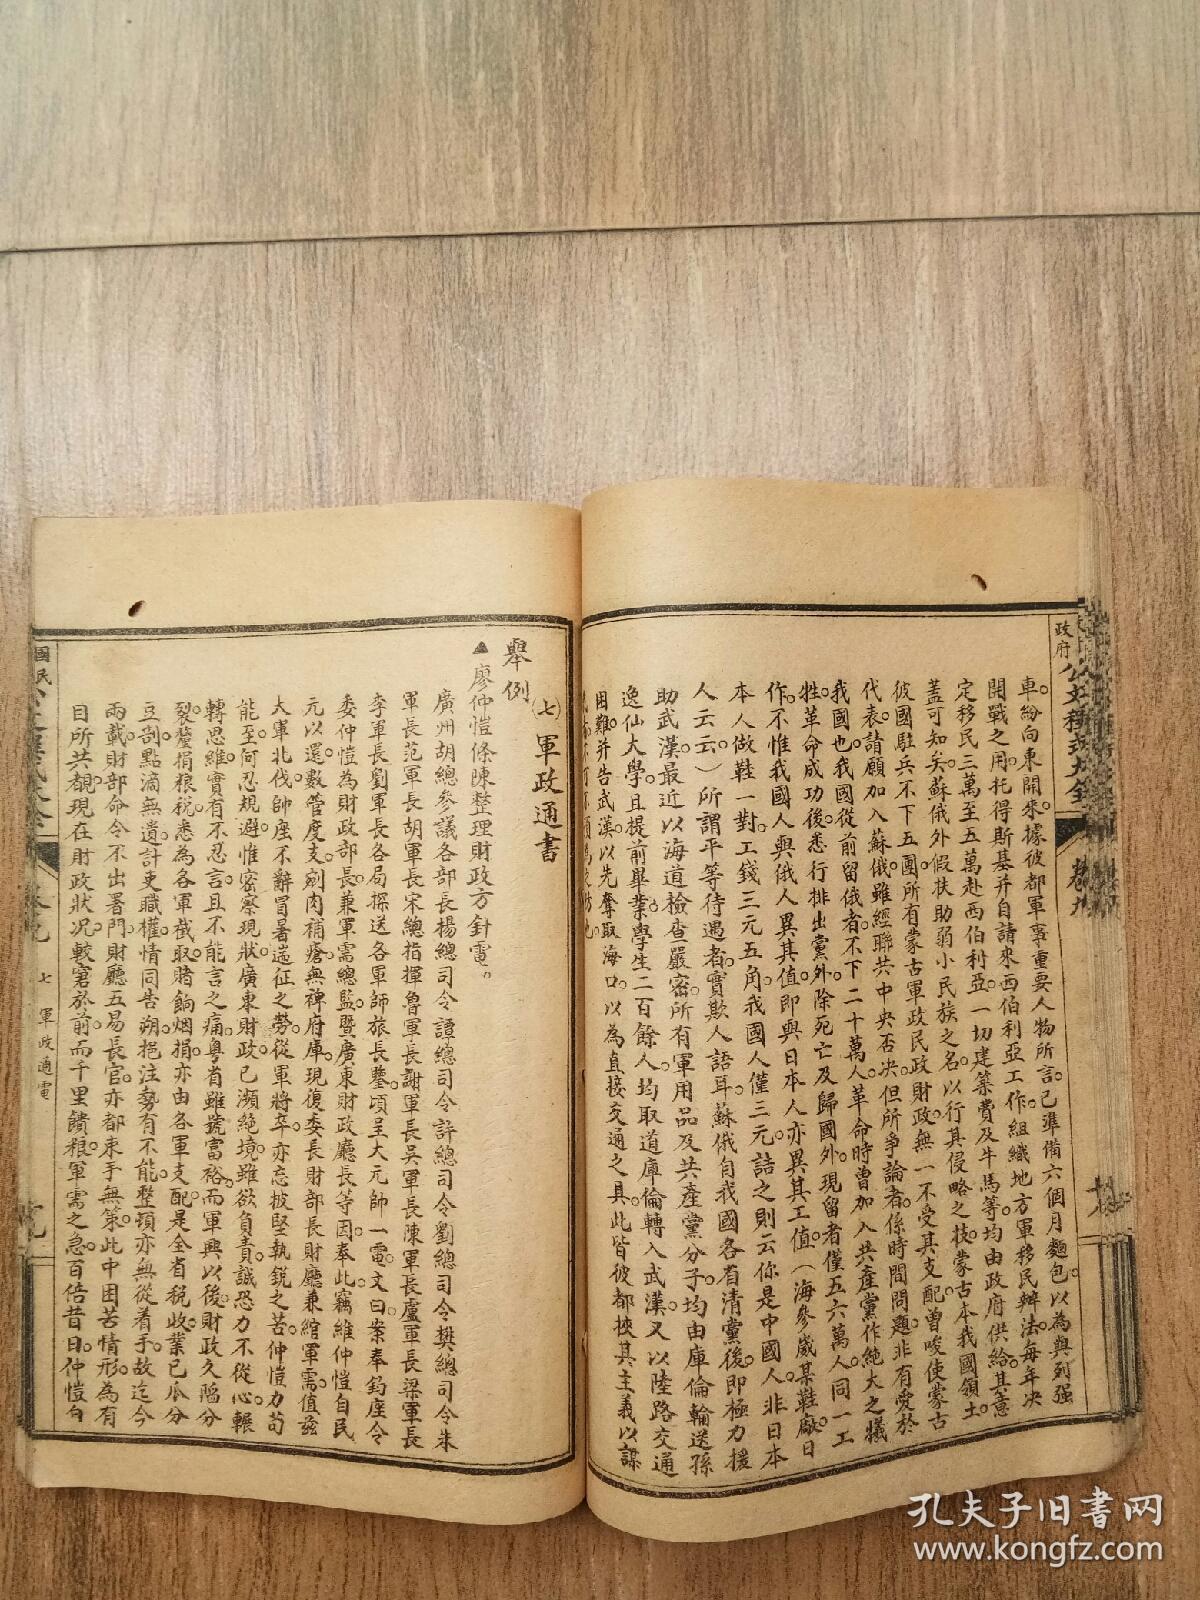 車。紛向東開來。據彼都軍事重要人物所言。已準備六個月麵包。以為與列強
開戰之用。托得斯基并自請來西伯利亞工作。組織地方軍移民辦法。每年決
定移民三萬至五萬赴西伯利亞。一切建築費及牛馬等。均由政府供給。其意
蓋可知矣。蘇俄外假扶助弱小民族之名。以行其侵略之技。蒙古本我國領土。
彼國駐兵不下五團。所有蒙古軍政民政財政。無一不受其支配。曾唆使蒙古
代表。請願加入蘇俄。雖經聯共中央否決。但所爭論者。係時間問題。非有愛於
我國也。我國從前留俄者。不下二十萬人。革命時曾加入共產黨。作純大之犧
牲。革命成功後。悉行排出黨外。除死亡及歸國外。現留者僅五六萬人。同一工
作。不惟我國人與俄人異其值。即與日本人亦異其工值。（海參崴某鞋廠。日
本人做鞋一對。工錢三元五角。我國人僅三元。詰之則云你是中國人。非日本
人云云）所謂平等待遇者。實欺人語耳。蘇俄自我國各省清黨後。即極力援
助武漢。最近以海道檢查嚴密。所有軍用品及共產黨分子。均由庫倫輪送。孫
逸仙大學。且提前畢業。學生二百餘人。均取道庫倫轉入武漢。又以陸路交通
困難。并告武漢。以先奪取海口。以為直接交通之具。此皆彼都挾其主義以謀
政府
公文程式大全
卷九
舉例
（七）軍政通書
▲廖仲愷條陳整理財政方針電。
廣州胡總參議各部長楊總司令譚總司令許總司令劉總司令樊總司令朱
軍長范軍長胡軍長宋總指揮魯軍長謝軍長吳軍長陳軍長盧軍長梁軍長
李軍長劉軍長各局探送各軍師旅長鑒。頃呈大元帥一電。文曰。案奉鈞座令
委仲愷為財政部長。兼軍需總監。暨廣東財政廳長等因。奉此。竊維仲愷自民
元以還。數管度支。剜肉補瘡。無裨府庫。現復委長財部長財廳兼綰軍需。值茲
大軍北伐。帥座不辭冒暑遄征之勞。從軍將卒。亦忘披堅執銳之苦。仲愷力苟
能至。何忍規避。惟密察現狀。廣東財政。已瀕絕境。雖欲負責。誠恐力不從心。輾
轉思維。實有不忍言。且不能言之痛。粵省雖號富裕。而軍興以後。財政久陷分
裂。釐捐粮税。悉為各軍截取。賭餉烟捐。亦由各軍支配。是全省税收。業已瓜分
豆剖。點滴無遺。計吏職權。情同告朔。挹注勢有不能。整頓亦無從着手。故迄今
兩載。財部命令。不出署門。財廳五易長官。亦都束手無策。此中困苦情形。為有
目所共覩。現在財政狀况。較窘於前。而千里饋粮。軍需之急。百倍昔日。仲愷白
國民
七 軍政通電
孔夫子旧書网
www.kongfz.com